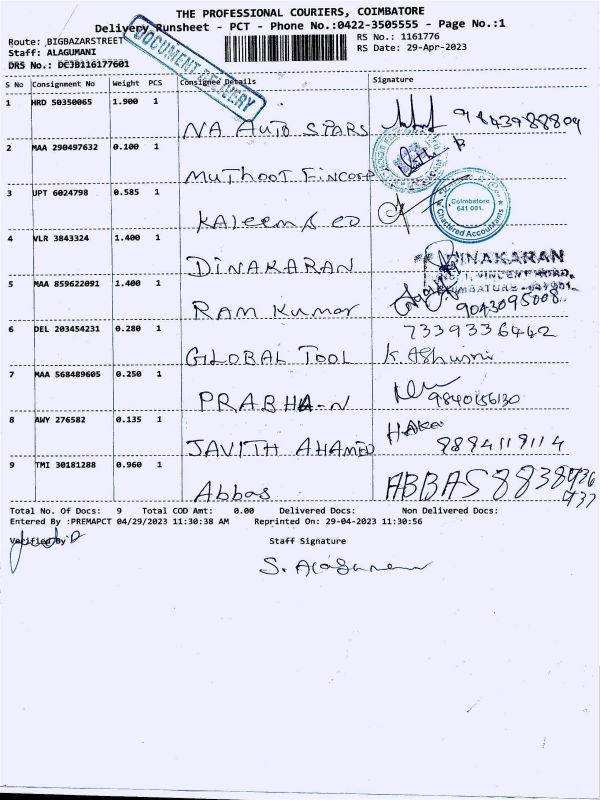 THE PROFESSIONAL COURIERS, COIMBATORE
Delivery Runsheet - PCT - Phone No.:0422-3505555 - Page No.:1
Route: BIGBAZARSTREET
RS No.: 1161776
Staff: ALAGUMANI
RS Date: 29-Apr-2023
DRS No.: DCJB116177601
DOCUMENT DELIVERY
S No Consignment No Weight PCS Consignee Details Signature
1 HRD 50350065 1.900 1
NA AUTO STARS 9843988809
2 MAA 290497632 0.100 1
MUTHOOT FINCORP
3 UPT 6024798 0.585 1
Coimbatore
641 001.
Chartered Accountants
KALeem & co
4 VLR 3843324 1.400 1
DINAKARAN DINAKARAN
VINCENT ROAD,
5 MAA 859622091 1.400 1
RAM Kumar 9043095008
6 DEL 203454231 0.280 1 7339336442
GILOBAL TOOL K. Ashwini
7 MAA 568489605 0.250 1
PRABHA-N 9840156130
8 AWY 276582 0.135 1
JAVITH AHAMED 9894119114
9 TMI 30181288 0.960 1
Abbas ABBAS 8838936
937
Total No. Of Docs: 9 Total COD Amt: 0.00 Delivered Docs: Non Delivered Docs:
Entered By :PREMAPCT 04/29/2023 11:30:38 AM Reprinted On: 29-04-2023 11:30:56
Verified By Staff Signature